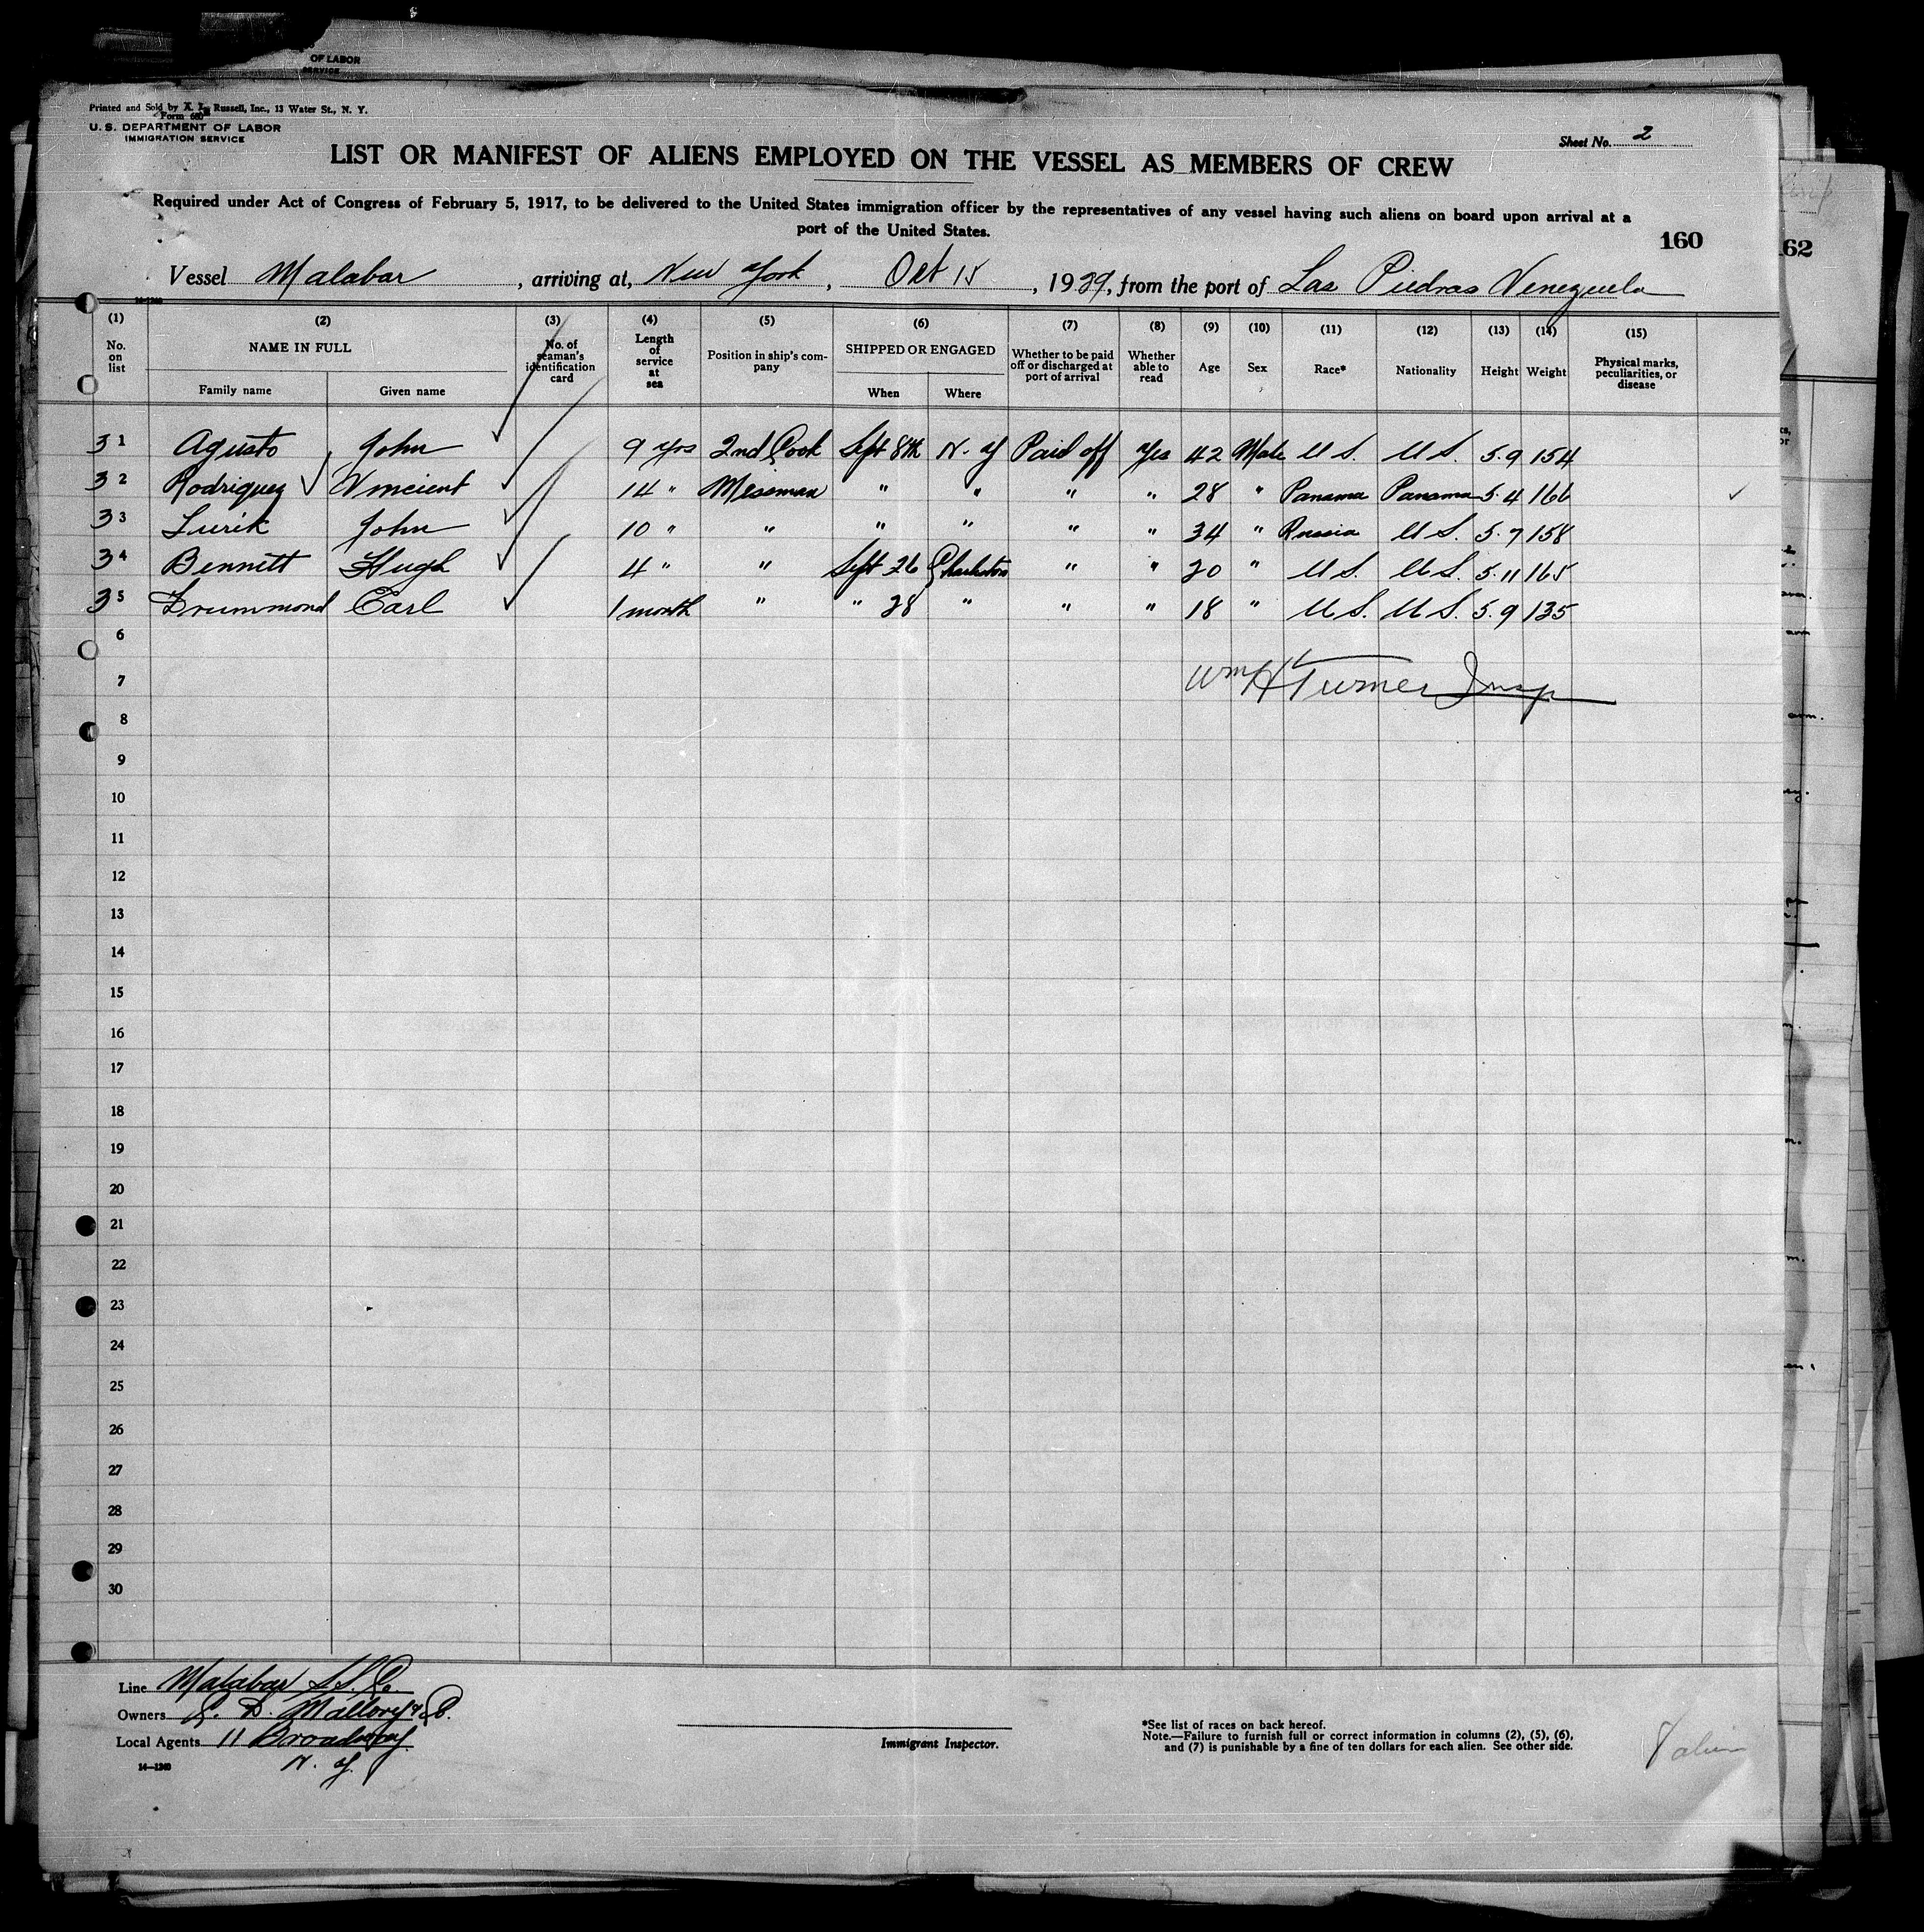 OF LABOR
SERVICE
Printed and Sold by A. L. Russell, Inc., 13 Water St., N. Y.
Form 680
U. S. DEPARTMENT OF LABOR
IMMIGRATION SERVICE
Sheet No. 2
LIST OR MANIFEST OF ALIENS EMPLOYED ON THE VESSEL AS MEMBERS OF CREW
Required under Act of Congress of February 5, 1917, to be delivered to the United States immigration officer by the representatives of any vessel having such aliens on board upon arrival at a
port of the United States.
160
62
Vessel Malabar, arriving at, New York, Oct 15, 1929, from the port of Las Piedras Venezuela
14-1240
(1) (2) (3) (4) (5) (6) (7) (8) (9) (10) (11) (12) (13) (14) (15)
No. on list NAME IN FULL Family name Given name No. of seaman's identification card Length of service at sea Position in ship's company SHIPPED OR ENGAGED When Where Whether to be paid off or discharged at port of arrival Whether able to read Age Sex Race* Nationality Height Weight Physical marks, peculiarities, or disease
31 Agusto John 9 yrs 2nd Cook Sept 8th N. Y Paid off Yes 42 Male U S. U S. 5.9 154
32 Rodriquez Vincient 14 " Messman " " " " 28 " Panama Panama 5.4 166
33 Lurik John 10 " " " " " " 34 " Russia U S. 5.7 158
34 Bennett Hugh 4 " " Sept 26 Charleston " " 20 " U S. U S. 5.11 165
35 Drummond Earl 1 month " " 28 " " " 18 " U S. U S. 5.9 135
6
7 Wm H Turner Insp
8
9
10
11
12
13
14
15
16
17
18
19
20
21
22
23
24
25
26
27
28
29
30
Line Malabar S.S. Co.
Owners C. D. Mallory & Co.
Local Agents 11 Broadway
N. Y.
14—1240
Immigrant Inspector.
*See list of races on back hereof.
Note.—Failure to furnish full or correct information in columns (2), (5), (6),
and (7) is punishable by a fine of ten dollars for each alien. See other side.
alien